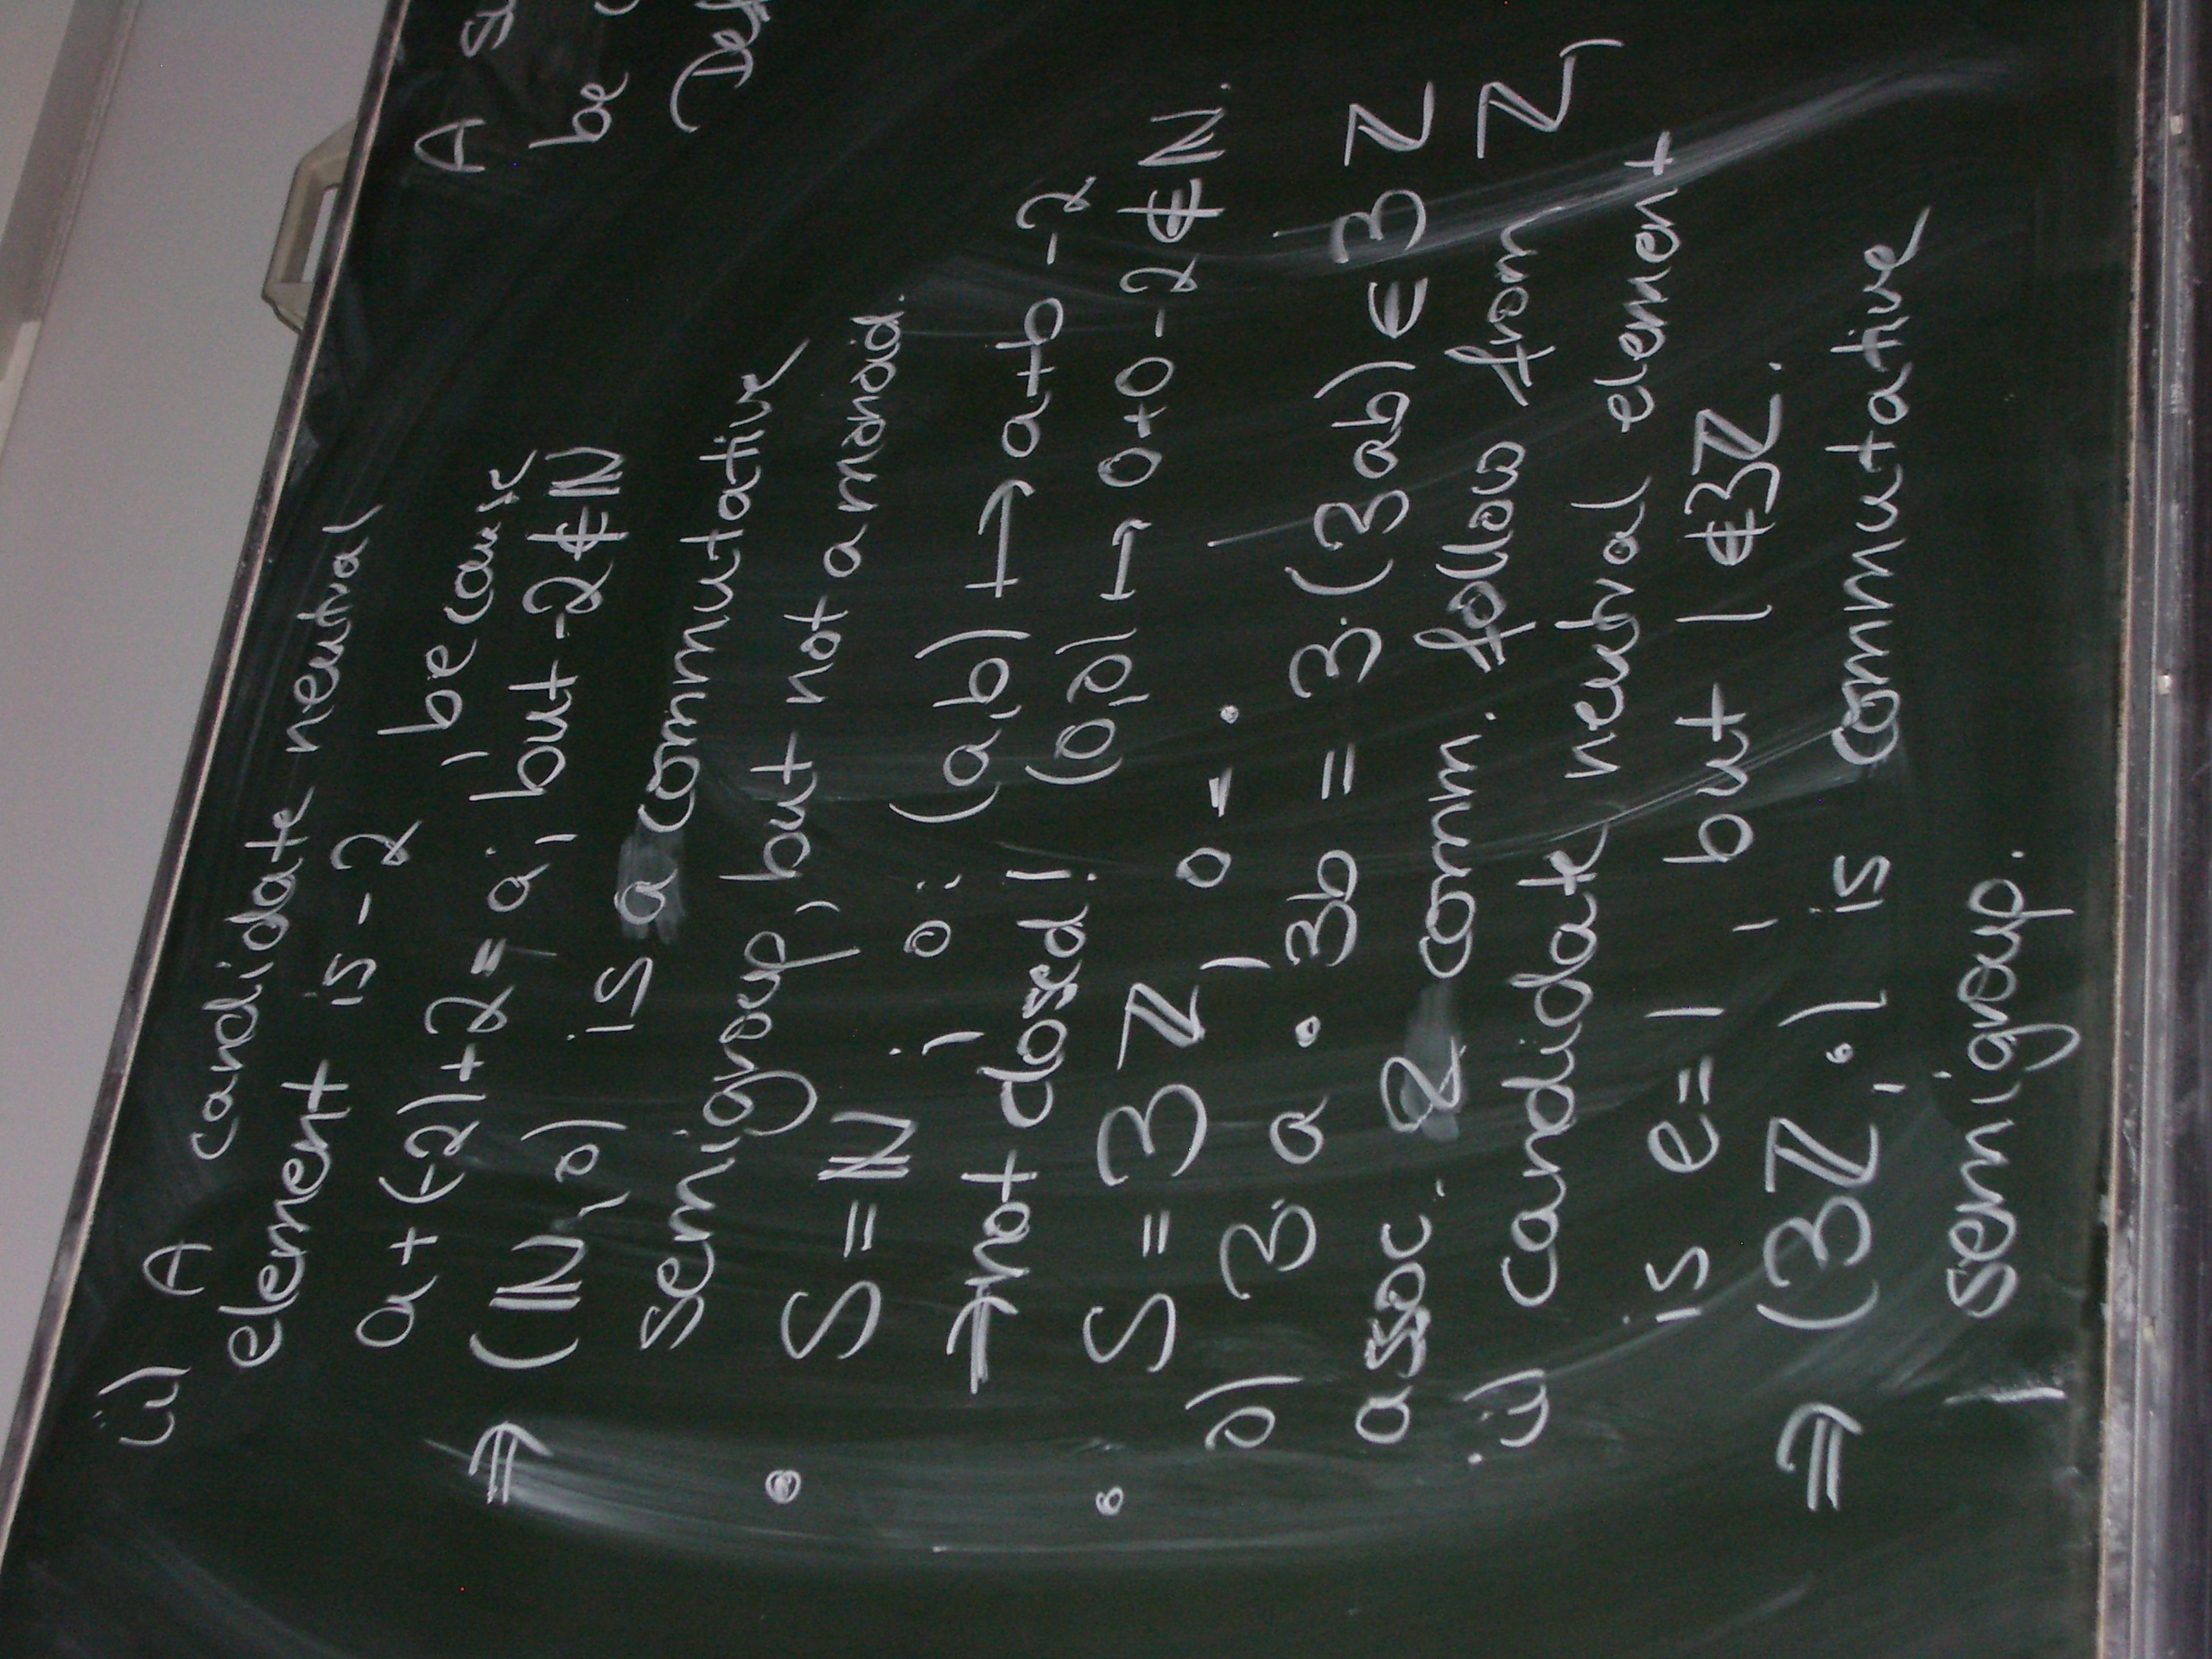 ii) A candidate neutral
element is -2, because
a + (-2) + 2 = a, but -2 ∉ ℕ
⇒ (ℕ, o) is a commutative
semigroup, but not a monoid.
• S = ℕ, o: (a,b) ↦ a+b-2
→ not closed! (0,0) ↦ 0+0-2 ∉ ℕ.
• S = 3ℤ, o = •
o) 3·a • 3b = 3·(3ab) ∈ 3ℤ
assoc. & comm. follow from ℤ,
ii) candidate neutral element
is e=1, but 1 ∉ 3ℤ.
⇒ (3ℤ, •) is commutative
semigroup.
A
be